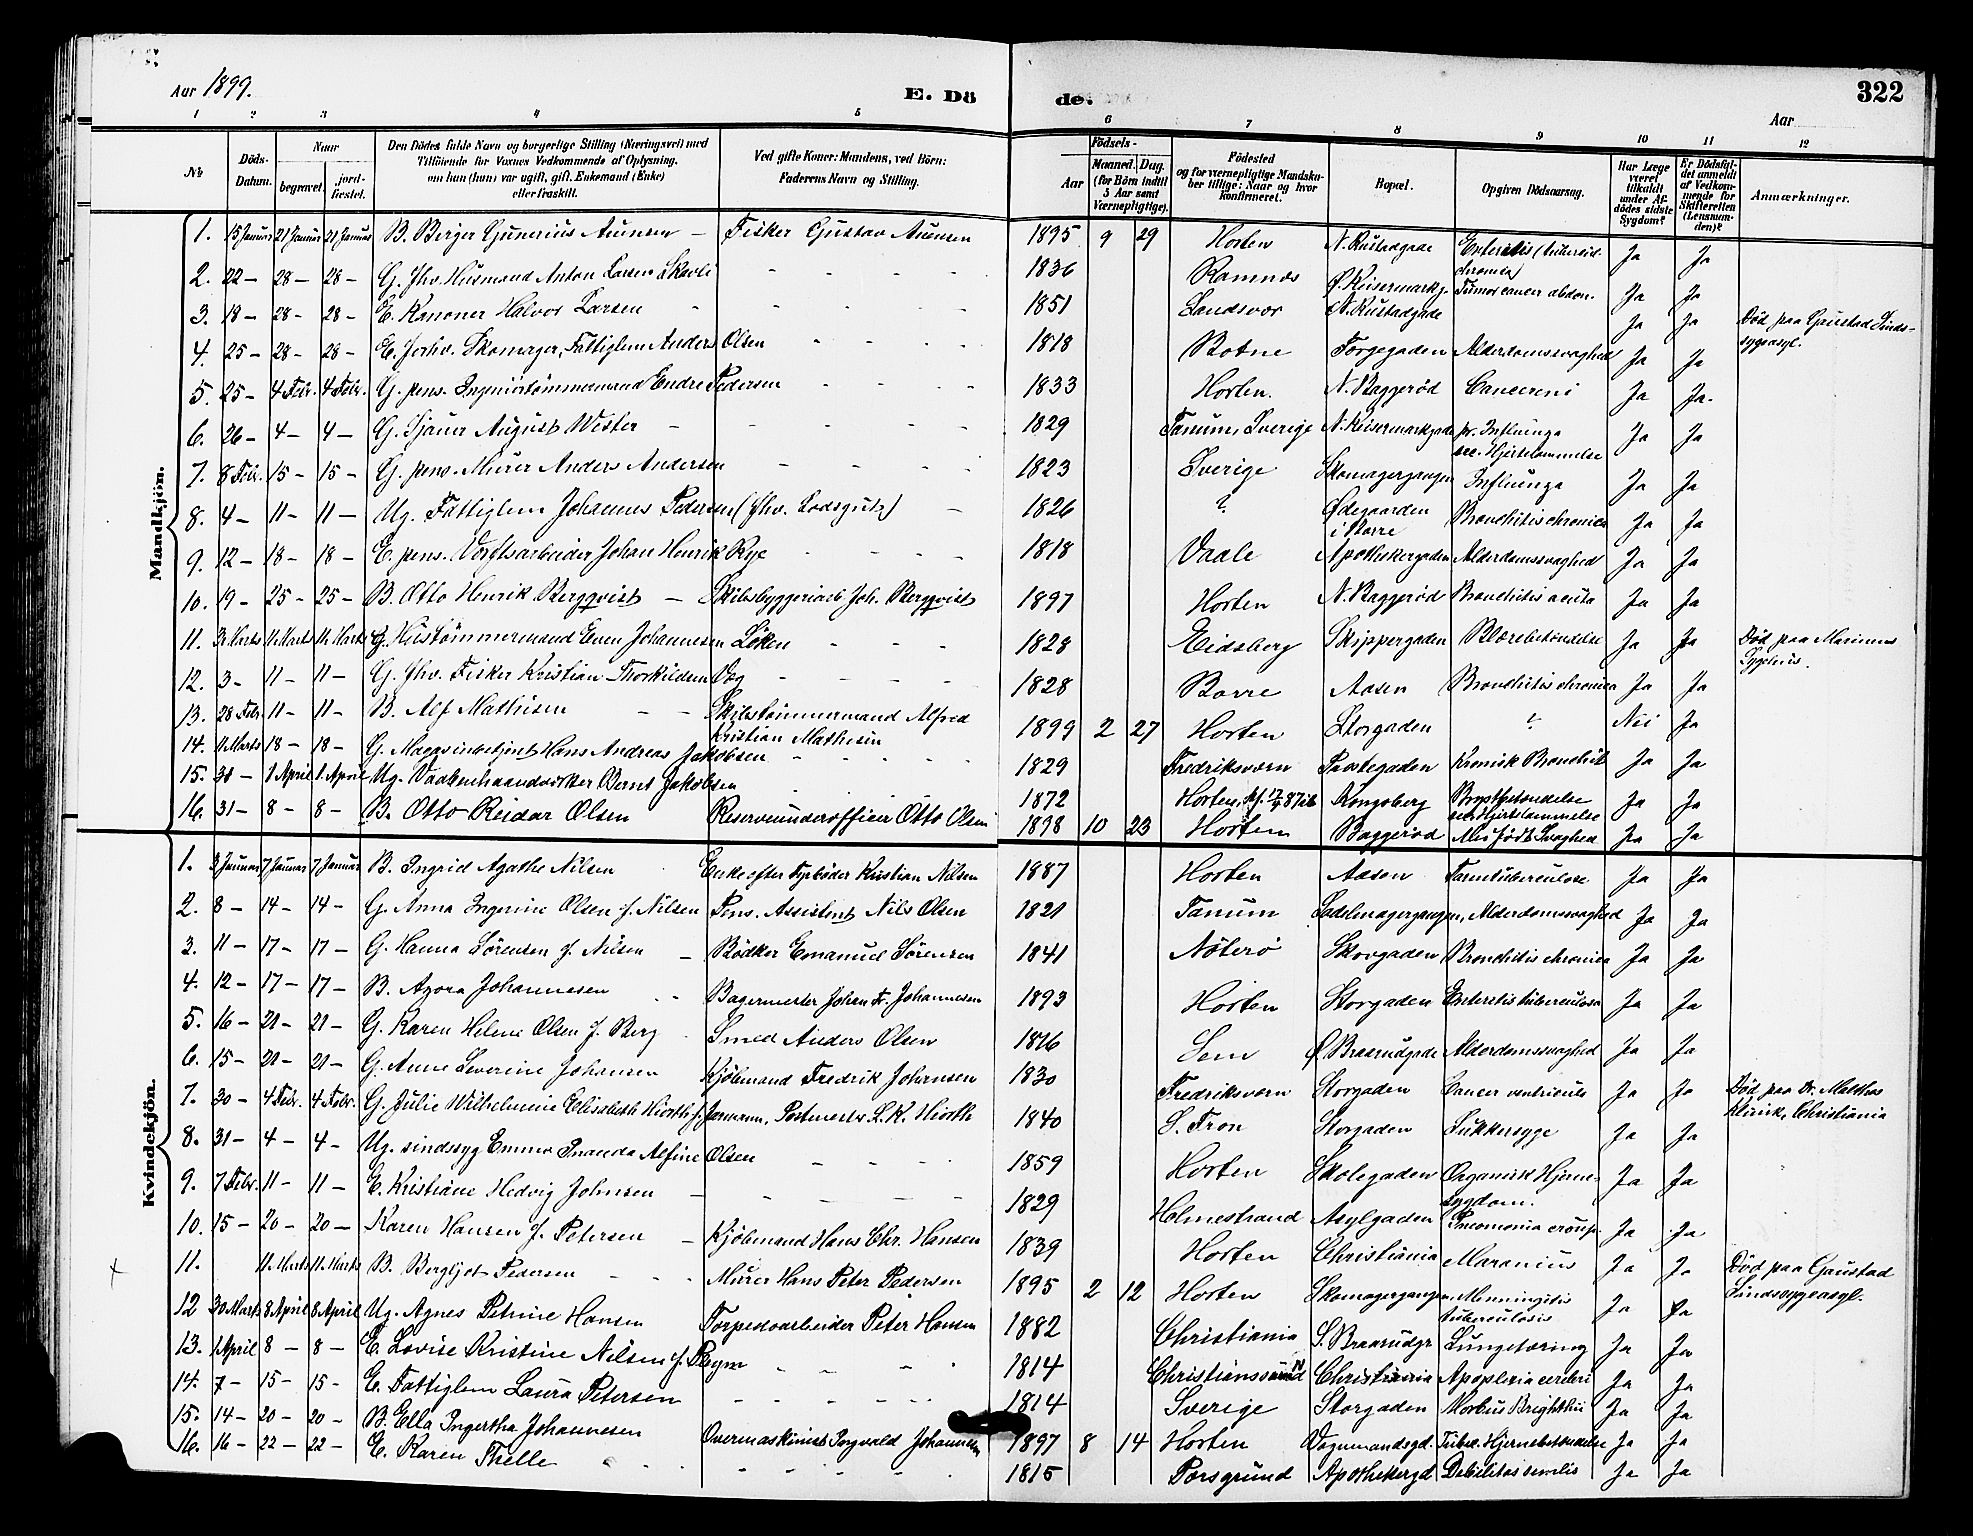 Aar 1899.
E. Dö
de.
322
Aar
1 2 3 4 5 6 7 8 9 10 11 12
No
Döds-Datum.
Naar
begravet.
jord-fæstet.
Den Dödes fulde Navn og borgerlige Stilling (Næringsvei) med
Tilföiende for Voxnes Vedkommende af Oplysning,
om han (hun) var ugift, gift, Enkemand (Enke)
eller fraskilt.
Ved gifte Koner: Mandens, ved Börn:
Faderens Navn og Stilling.
Födsels-
Aar
Maaned. Dag.
(for Börn indtil
5 Aar samt
Værnepligtige).
Födested
og for værnepligtige Mandska-
ber tillige: Naar og hvor
konfirmeret.
Bopæl.
Opgiven Dödsaarsag.
Har Læge
været
tilkaldt
under Af-
dödes sidste
Sygdom?
Er Dödsfal-
det anmeldt
af Vedkom-
mende for
Skifteretten
(Lensman-
den)?
Anmærkninger.
Mandkjön.
1. 15 Januar 21 Januar 21 Januar B. Birger Gunerius Aunsen – Fisker Gustav Aunsen 1895 9 29 Horten N. Rustadgade Enteritis (tubercul. chronica) Ja Ja
2. 22 – 28 – 28 – G. fhv. Husmand Anton Larsen Skavli 1836 Ramnes Ø. Keisermarkg. Tumor cancer abdom. Ja Ja
3. 18 – 28 – 28 – E. Kanoner Halvor Larsen 1851 Sandsvær N. Rustadgade Ja Ja Död paa Gaustad Sinds-sygeasyl.
4. 25 – 28 – 28 – E. forhv. Skomager, Fattiglem Anders Olsen 1818 Botne Torgegaden Alderdomssvaghed Ja Ja
5. 25 – 4 Febr. 4 Febr. G. pens. Ingeniörtömmermand Endre Pedersen 1833 Horten. N. Baggeröd Cancer Ja Ja
6. 26 – 4 – 4 – G. Sjauer August Wister 1829 Tanum, Sverige N. Keisermarkgade pr. Influenza sec. Hjertelammelse Ja Ja
7. 8 Febr. 15 – 15 – G. pens. Murer Anders Andersen 1823 Sverige Skomagergangen Influenza Ja Ja
8. 4 – 11 – 11 – Ug. Fattiglem Johannes Pedersen (fhv. Lodsgut) 1826 ? Ødegaarden i Borre Bronchitis chronica Ja Ja
9. 12 – 18 – 18 – E. pens. Verftsarbeider Johan Henrik Rye 1818 Vaale Apothekergaden Alderdomssvaghed Ja Ja
10. 19 – 25 – 25 – B. Otto Henrik Bergqvist – Skibsbyggeriarb. Joh. Bergqvist 1897 Horten N. Baggeröd Bronchitis acuta Ja Ja
11. 3 Marts 11 Marts 11 Marts G. Hustömmermand Even Johannesen Löken 1828 Eidsberg Skippergaden Blærebetændelse Ja Ja Död paa Marinens Sygehus.
12. 3 – 11 – 11 – G. fhv. Fisker Kristian Thorkildsen Vog 1828 Borre Aasen Bronchitis chronica Ja Ja
13. 28 Febr. 11 – 11 – B. Alf Mathisen – – Skibstömmermand Alfred Kristian Mathisen 1899 2 27 Horten Storgaden ? Nei Ja
14. 11 Marts 18 – 18 – G. Magasinbetjent Hans Andreas Jakobsen 1829 Fredriksværn Prestegaden Kronisk Bronchit Ja Ja
15. 31 – 1 April 1 April Ug. Vaabenhaandverker Bernt Jakobsen 1872 Horten, kf. 87 ib Kongsberg Brystbetændelse sec. Hjertelammelse Ja Ja
16. 31 – 8 – 8 – B. Otto Reidar Olsen Reserveunderofficer Otto Olsen 1898 10 23 Horten Baggeröd Medfödt Svaghed Ja Ja
Kvindekjön.
1. 3 Januar 7 Januar 7 Januar B. Ingrid Agathe Nilsen Enke efter Fyrböder Kristian Nilsen 1887 Horten Aasen Tarmtuberculose Ja Ja
2. 8 – 14 – 14 – G. Anna Ingerine Olsen f. Nilsen Pens. Assistent Nils Olsen 1821 Tanum Sadelmagergangen, Alderdomssvaghed Ja Ja
3. 11 – 17 – 17 – G. Hanna Sörensen f. Nilsen – Bödker Emanuel Sörensen 1841 Nöterö Skovgaden Bronchitis chronica Ja Ja
4. 12 – 17 – 17 – B. Agora Johannesen Bagermester Johan Fr. Johannesen 1893 Horten Storgaden Enteritis tuberculosa Ja Ja
5. 16 – 21 – 21 – G. Karen Helene Olsen f. Berg Smed Anders Olsen 1816 Sem Ø. Braarudgade Alderdomssvaghed Ja Ja
6. 15 – 21 – 21 – G. Anne Severine Johansen Kjöbmand Fredrik Johansen 1830 Fredriksværn Storgaden Cancer ventriculi Ja Ja Död paa Dr. Malthes Klinik, Christiania
7. 30 – 4 Febr. 4 Febr. G. Julie Wilhelmine Elisabeth Hiorth f. Jormann, Postmester L. K. Hiorth 1840 S. Fron Storgaden Sukkersyge Ja Ja
8. 31 – 4 – 4 – Ug. sindssyg Emma Amanda Alfine Olsen 1859 Horten Skolegaden Organisk Hjerne-sygdom. Ja Ja
9. 7 Febr. 11 – 11 – E. Kristiane Hedvig Johnsen 1829 Holmestrand Asylgaden Pneumonia croup. Ja Ja
10. 15 – 20 – 20 – Karen Hansen f. Petersen – Kjöbmand Hans Chr. Hansen 1839 Horten Christiania Marasmus Ja Ja Död paa Gaustad Sindssygeasyl.
11. 11. Marts 11. Marts B. Bergljot Pedersen Murer Hans Peter Pedersen 1895 2 12 Horten Skomagergangen, Menningitis tuberculosis Ja Ja
12 30 Marts 8 April 8 April Ug. Agnes Petrine Hansen Torpedoarbeider Peter Hansen 1882 Christiania S. Braarudgr. Lungetæring Ja Ja
13. 1 April 8 – 8 – E. Lovise Kristine Nilsen f. Reym 1814 Christianssund N Christiania Apoplexia cerebri Ja Ja
14. 7 – 15 – 15 – E. Fattiglem Laura Petersen 1814 Sverige Storgaden Morbus Brightii Ja Ja
15. 14 – 20 – 20 – B. Ella Ingertha Johannesen Overmaskinist Torgvald Johannesen 1897 8 14 Horten Vognmandsgd. Tuberc. Hjernebetændelse Ja Ja
16. 16 – 22 – 22 – E. Karen Thelle 1815 Porsgrund Apothekergd Debilitas senilis Ja Ja